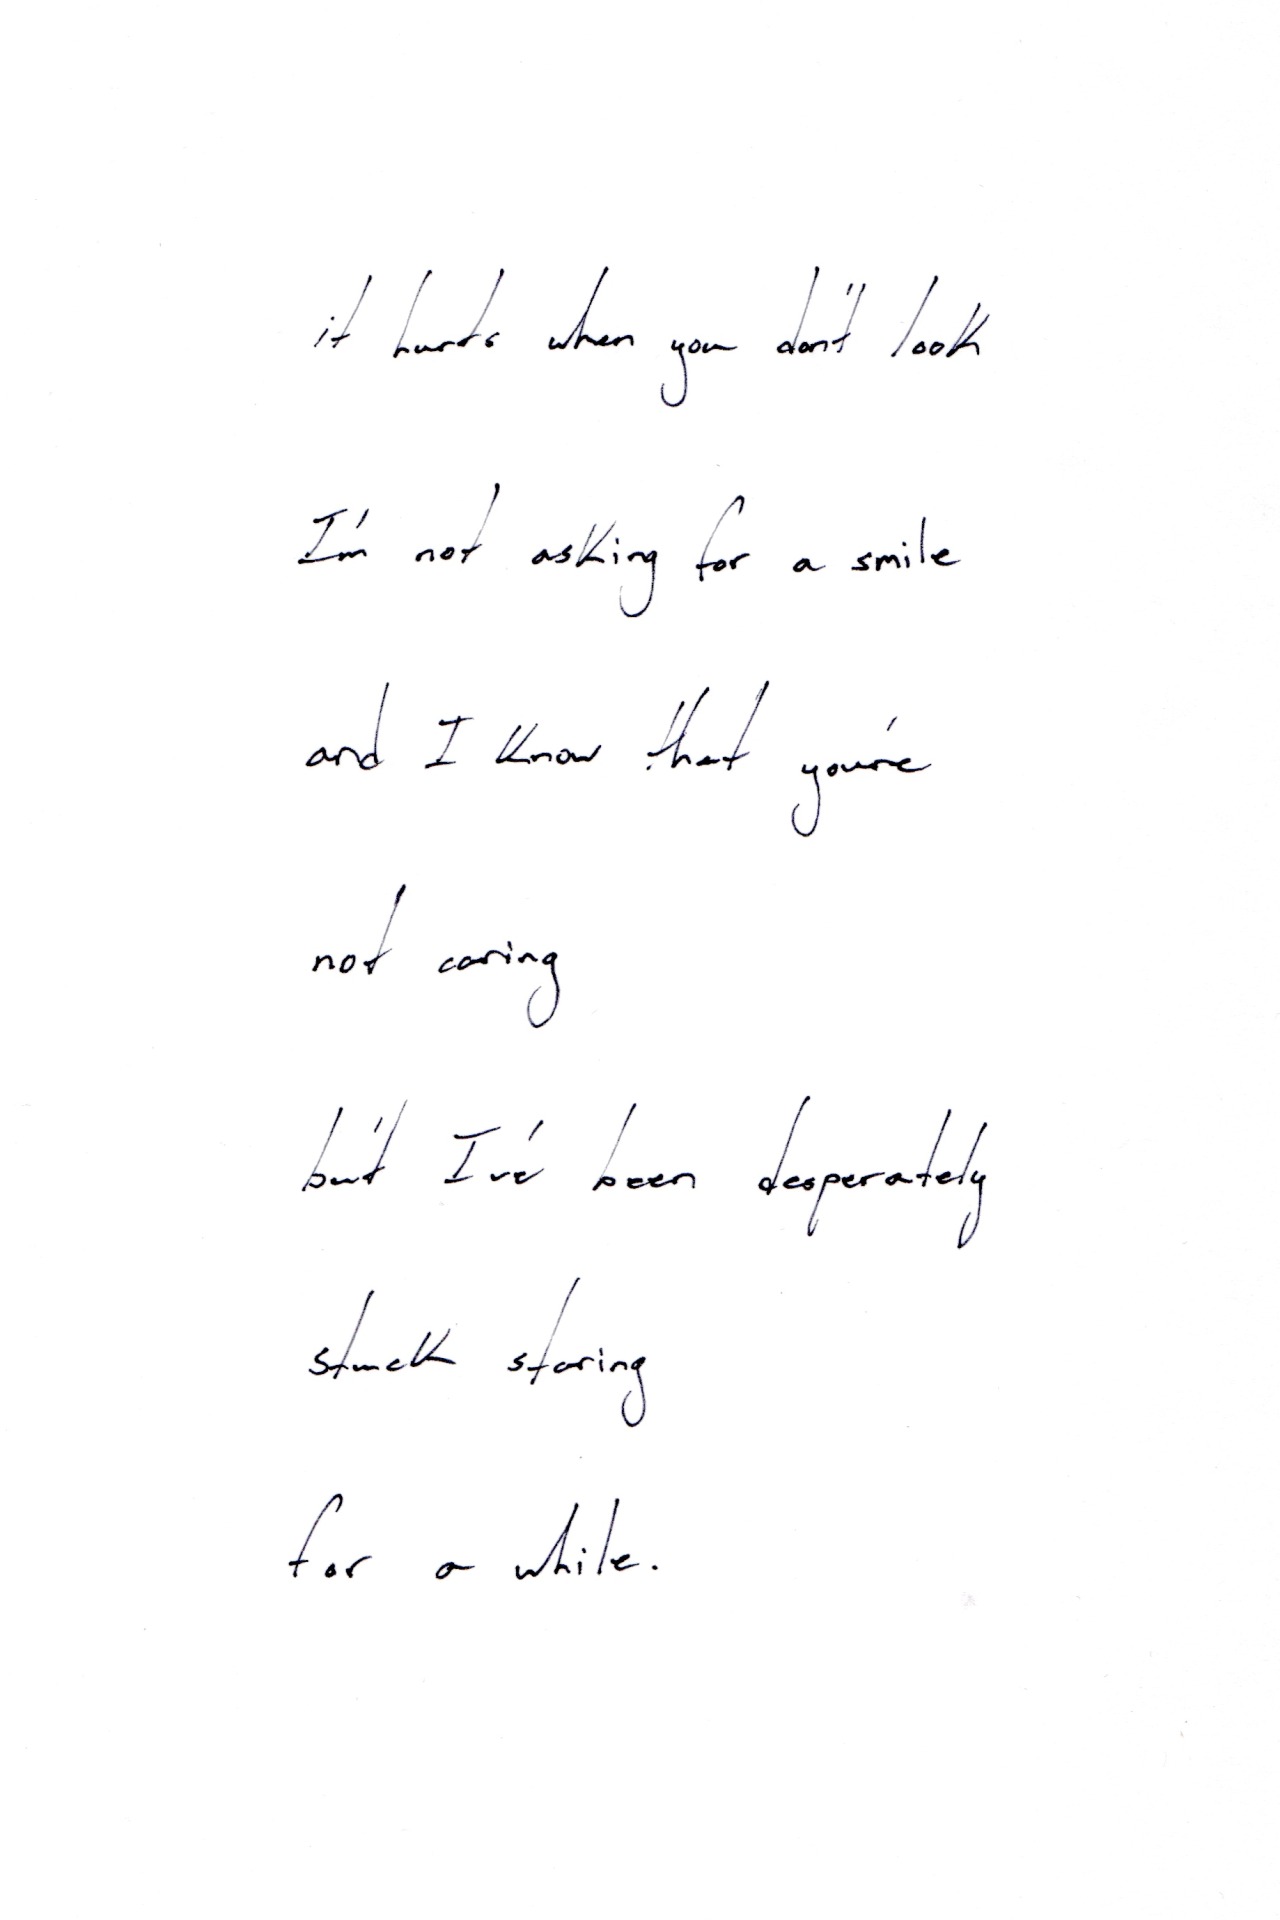 it hurts when you don't look
I'm not asking for a smile
and I know that you're
not caring
but I've been desperately
stuck staring
for a while.